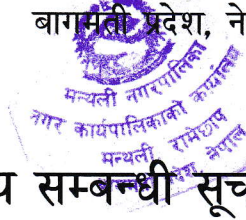 बागमती प्रदेश, ने
मन्थली नगरपालिका
नगर कार्यपालिकाको कार्यालय
मन्थली रामेछाप
नेपाल
य सम्बन्धी सूच